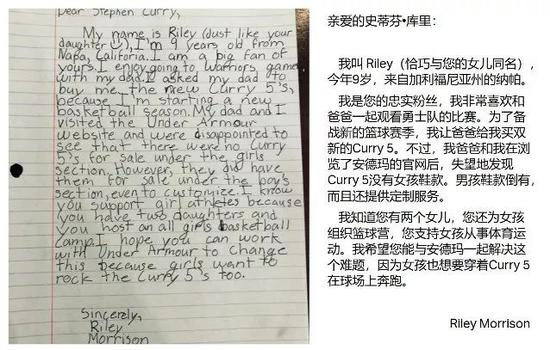 Dear Stephen Curry,
My name is Riley (just like your
daughter), I'm 9 years old from
Napa, California. I am a big fan of
yours. I enjoy going to Warriors games
with my dad. I asked my dad to
buy me the new Curry 5's,
because I'm starting a new
basketball season. My dad and I
visited the Under Armour
website and were disappointed to
see that there were no Curry
5's for sale under the girls
section. However, they did have
them for sale under the boy's
section, even to customize. I know
you support girl athletes because
you have two daughters and
you host an all girls basketball
camp. I hope you can work
with Under Armour to change
this because girls want to
rock the Curry 5's too.
Sincerely,
Riley
Morrison
亲爱的史蒂芬•库里:
我叫 Riley(恰巧与您的女儿同名),
今年9岁,来自加利福尼亚州的纳帕。
我是您的忠实粉丝,我非常喜欢和
爸爸一起观看勇士队的比赛。为了备
战新的篮球赛季,我让爸爸给我买双
新的Curry 5。不过,我爸爸和我在浏
览了安德玛的官网后,失望地发现
Curry 5没有女孩鞋款。男孩鞋款倒有,
而且还提供定制服务。
我知道您有两个女儿,您还为女孩
组织篮球营,您支持女孩从事体育运
动。我希望您能与安德玛一起解决这
个难题,因为女孩也想要穿着Curry 5
在球场上奔跑。
Riley Morrison